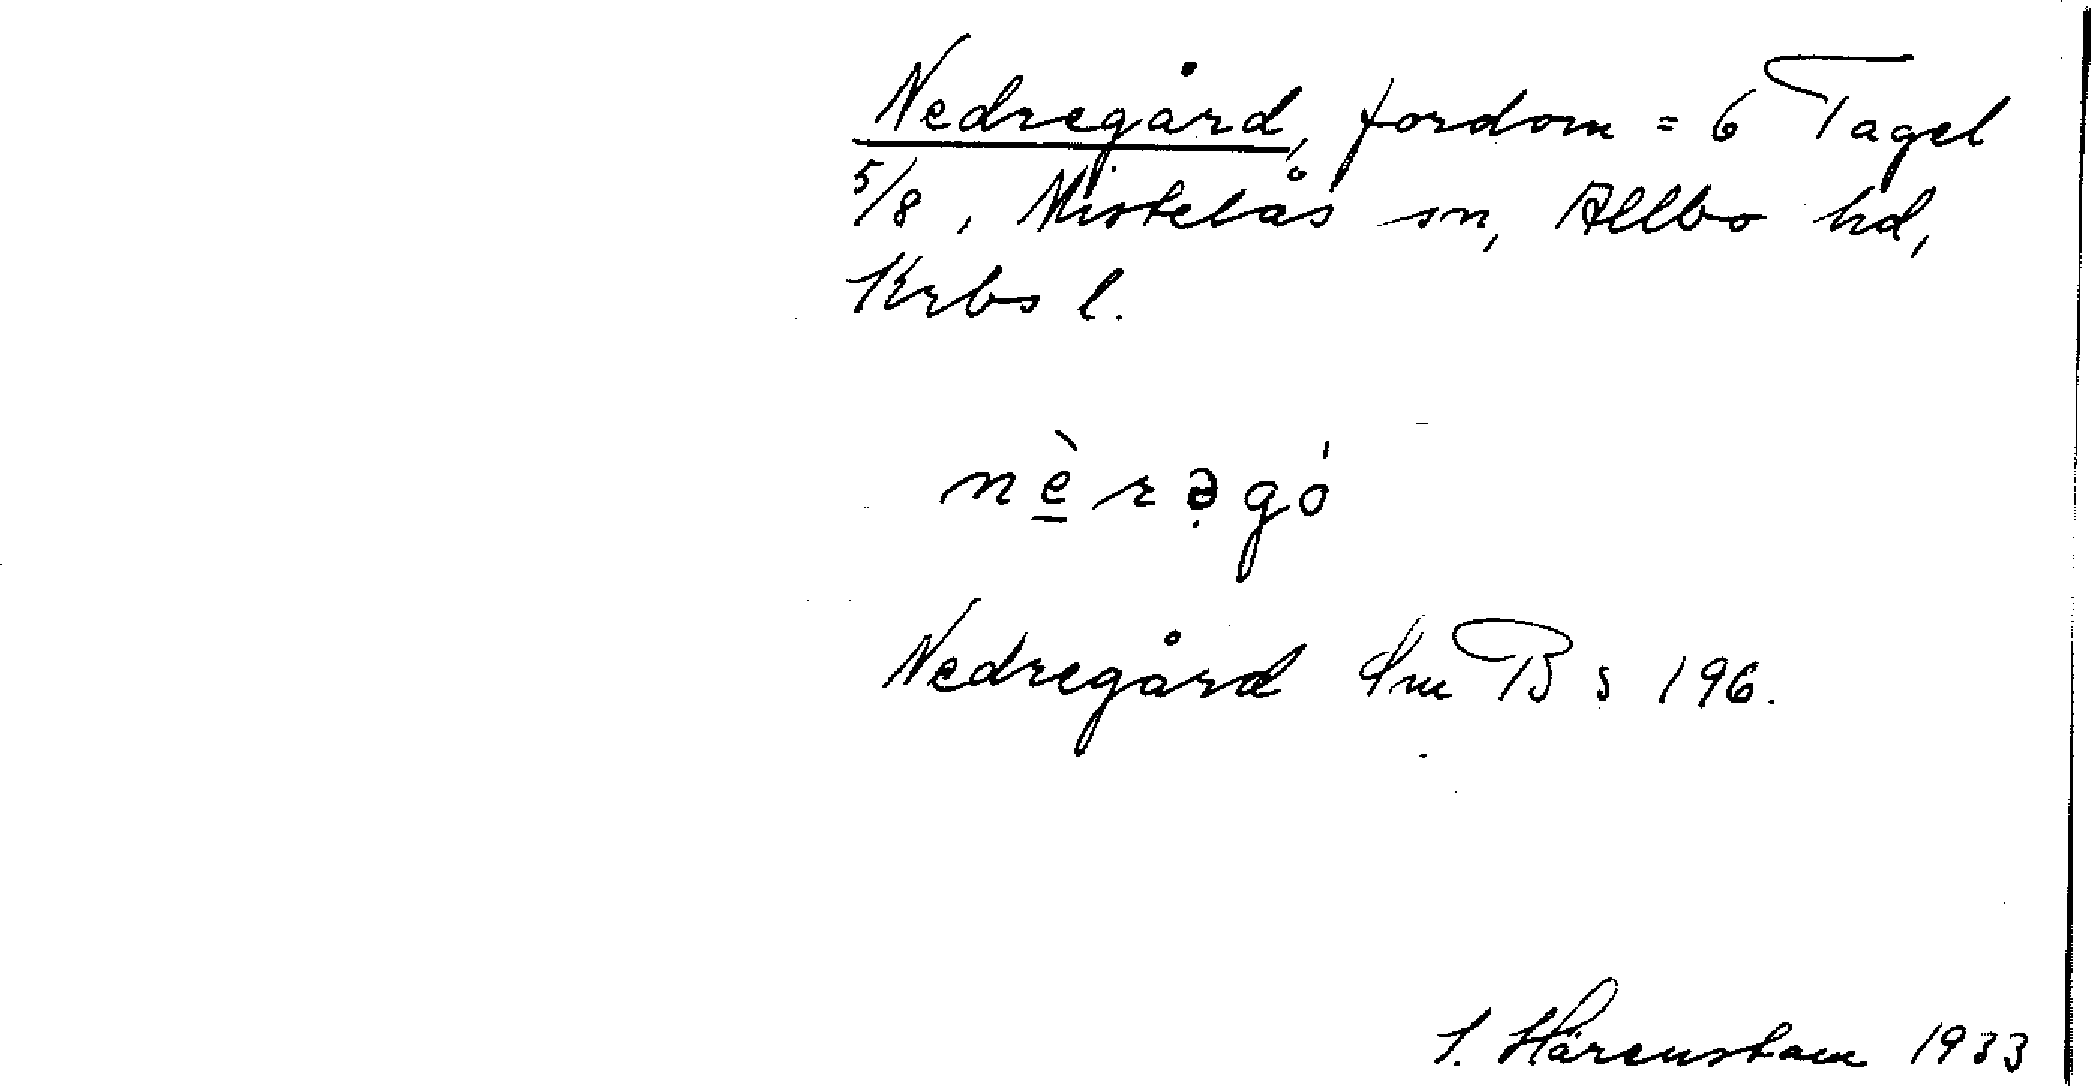 Nedregård, fordom = 6 Tagel
5/8, Mistelås sn, Allbo hd,
Krbs l.
nè̱rə̣gó
Nedregård Sm B s 196.
S. Härenstam 1933